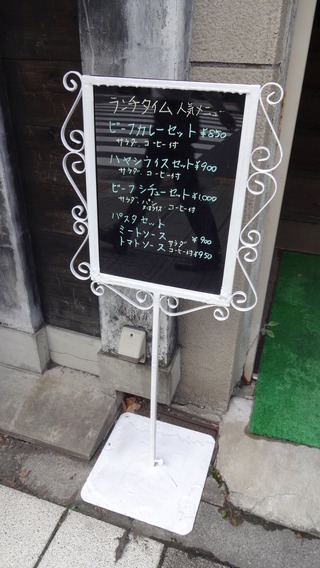 ランチタイム 人気メニュー
ビーフカレーセット ¥850
サラダ コーヒー付
ハヤシライスセット ¥900
サラダ コーヒー付
ビーフシチューセット ¥1,000
サラダ、パン
コーヒー付
パスタセット
ミートソース ¥900
トマトソース サラダ コーヒー付 ¥950